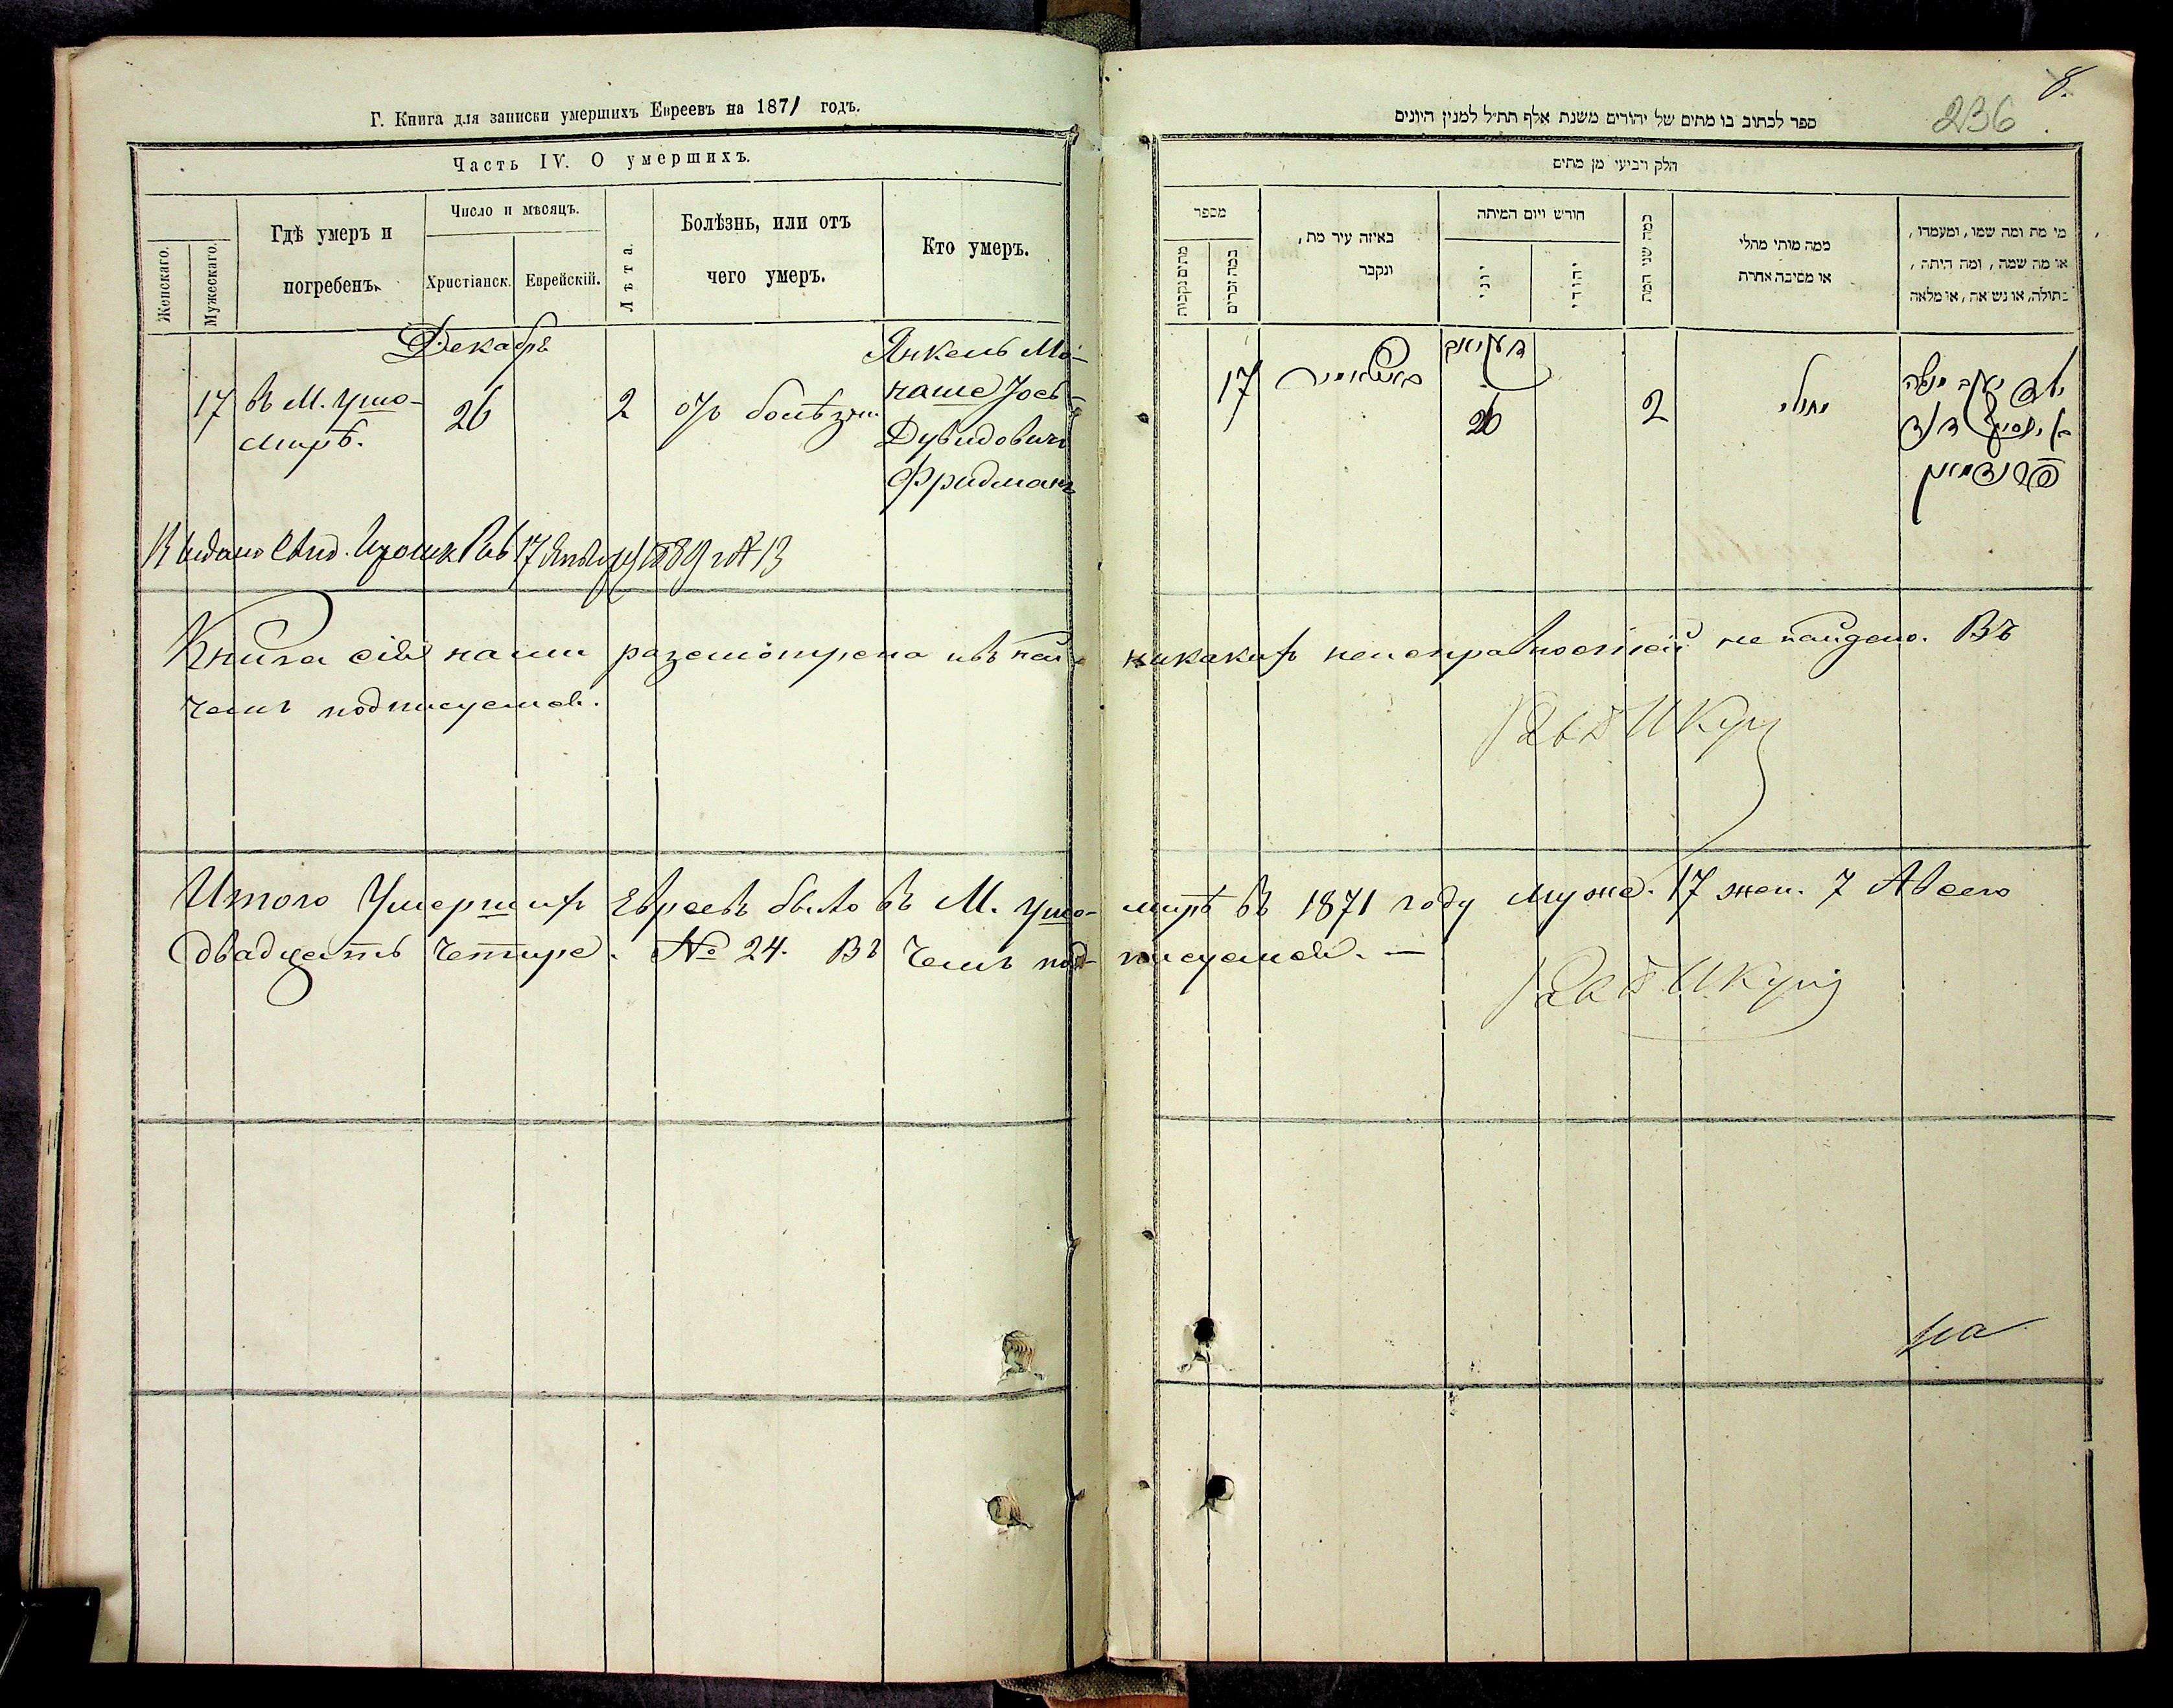 Г. Книга для записки умершихъ Евреевъ на 1871 годъ.
Часть IV. О умершихъ.
Женскаго.
Мужескаго.
Гдѣ умеръ и
погребенъ.
Число и мѣсяцъ.
Христіанск.
Еврейскій.
Лѣта.
Болѣзнь, или отъ
чего умеръ.
Кто умеръ.
Декабрь
17
въ М. Ушо-
мирѣ.
26
2
отъ болѣзни
Янкель Мо-
наше Іось-
Дувидовичъ
Фридманъ
Выдано Свид. 17 Января 1889 г № 13
Книга сія нами разсмотрена и въ ней
чемъ подписуемся.
Итого Умершихъ Евреевъ было въ М. Ушо-
двадцать четыре. № 24. Въ чемъ под-
8.
236
ספר לכתוב בו מתים של יהודים משנת אלף תת״ל למנין היונים
חלק רביעי מן מתים
מספר
מתים נקבות
כמה זכרים
באיזה עיר מת,
ונקבר
חודש ויום המיתה
יוני
יהודי
כמה שני המת
ממה מותו מחלי
או מסיבה אחרת
מי מת ומה שמו, ומעמדו,
או מה שמה, ומה היתה,
בתולה, או נשואה, או מלאה
17
26
2
מחולי
ילד יעקב מנשה
פרידמאן
никакихъ неисправностей не найдено. Въ
мирѣ въ 1871 году муже. 17 жен. 7 А всего
писуемся. —